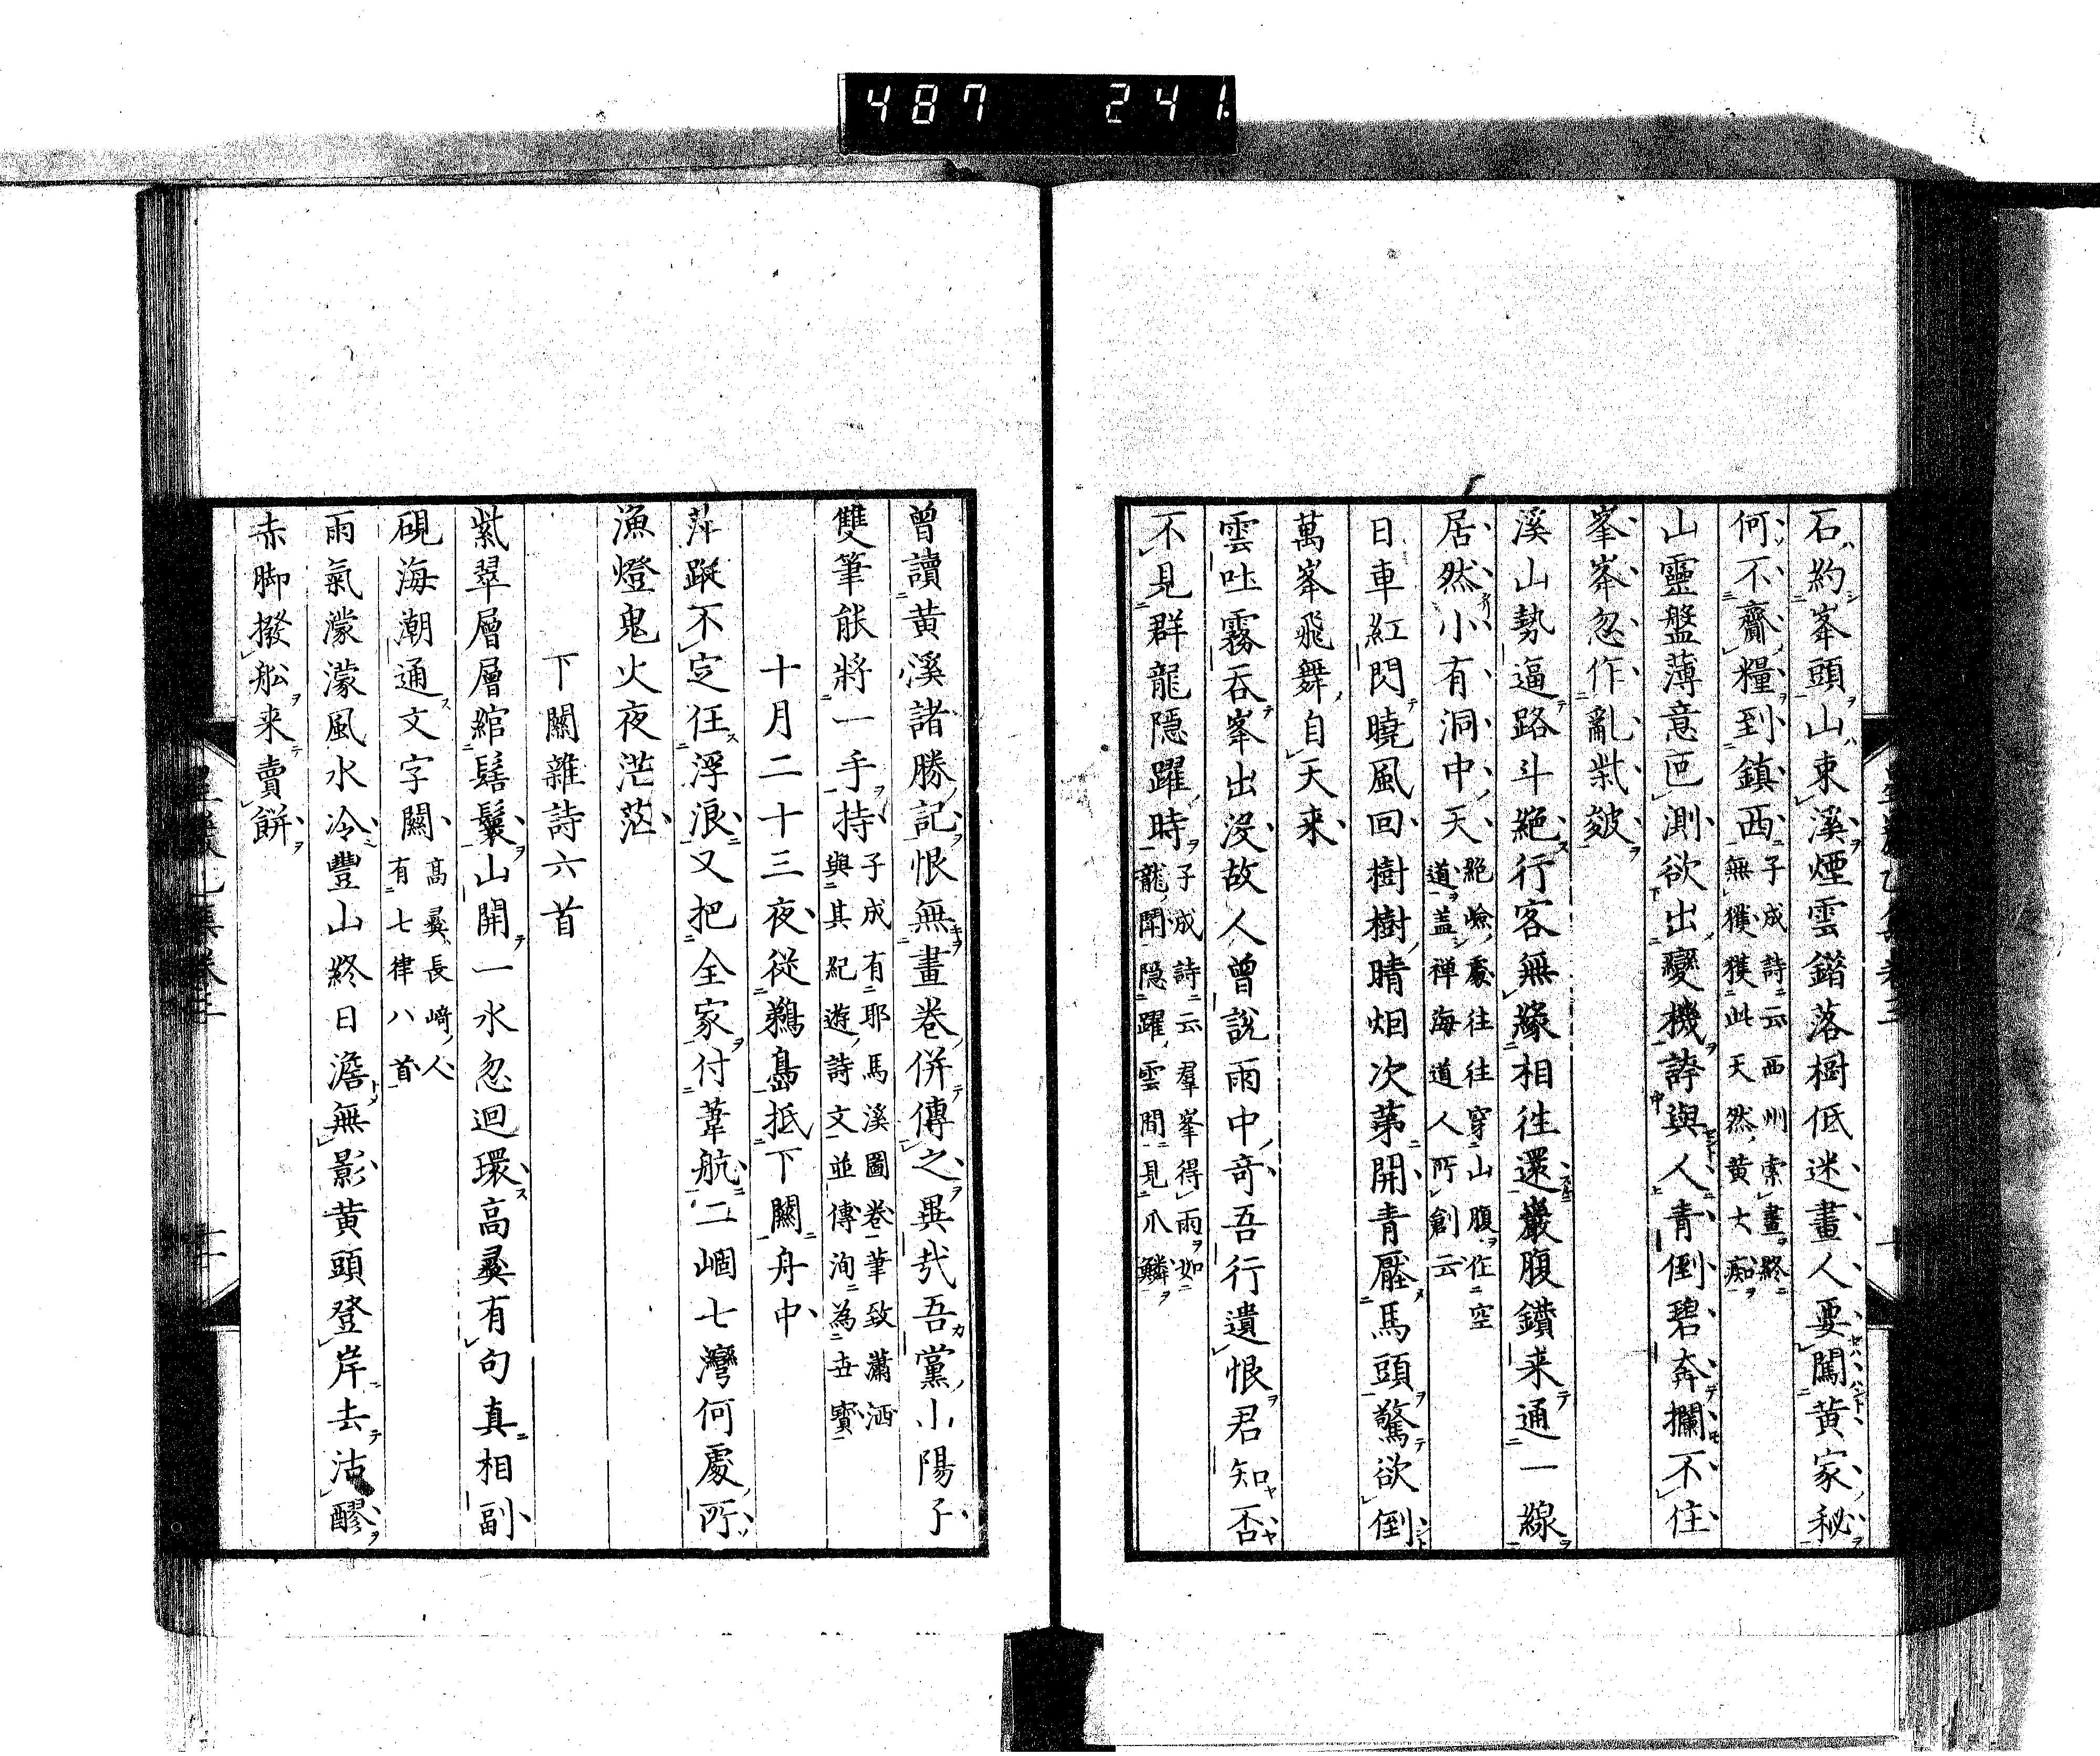 487 241
石約峯頭山束溪煙雲錯落樹低迷畫人要闖黄家秘
何不齎糧到鎮西 子成詩云西州索畫終無獲獲此天然黄大痴
山靈盤薄意叵測欲出變機誇與人青倒碧奔攔不住
峯峯忽作亂紫皴
溪山勢逼路斗絶行客無縁相往還巖腹鑚来通一線
居然小有洞中天 絶嶮處往往穿山腹作空道盖禅海道人所創云
日車紅閃曉風回樹樹晴烟次第開青壓馬頭驚欲倒
萬峯飛舞自天来
雲吐霧吞峯出没故人曾說雨中奇吾行遺恨君知否
不見群龍隠躍時 子成詩云羣峯得雨如龍鬪隠躍雲間見爪鱗
曾讀黄溪諸勝記恨無畫巻併傳之異哉吾黨小陽子
雙筆能將一手持 子成有耶馬溪圖巻筆致瀟洒與其紀遊詩文並傳洵為世寳
十月二十三夜従鵜島抵下關舟中
萍蹤不定任浮浪又把全家付葦航二崓七灣何處所
漁燈鬼火夜茫茫
下關雜詩六首
紫翠層層綰髻鬟山開一水忽迴環高彛有句真相副
硯海潮通文字關 高彛長﨑人有七律八首
雨氣濛濛風水冷豐山終日澹無影黄頭登岸去沽醪
赤脚撥舩来賣餅